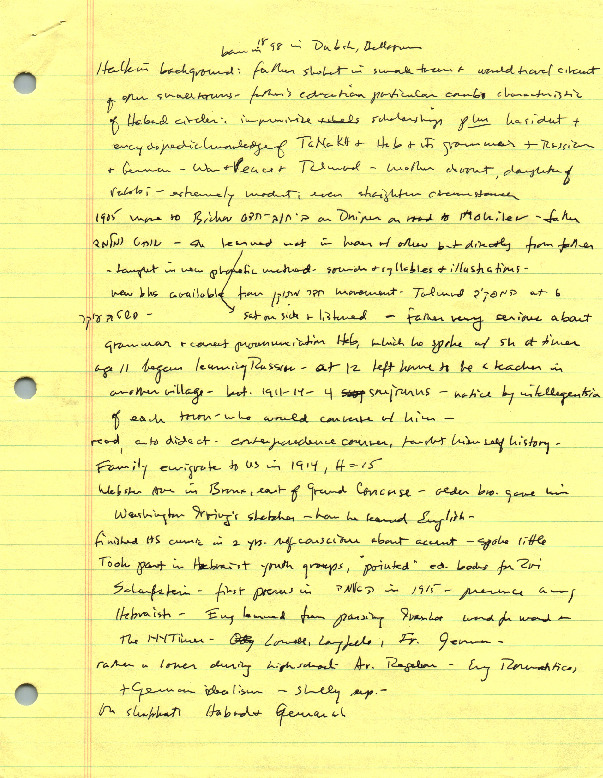 born in 1898 in Dubsk, Bellarus
Halkin background: father shohet in small town + would travel circuit
of other small towns - father's education particular combo characteristic
of Habad circles: impressive scholarship plus hasidut +
encyclopedic knowledge of TaNaKH + Heb + its grammar + Russian
+ German - War + Peace + Talmud - mother devout, daughter of
rabbi - extremely modest, even straighter circumstances
1905 move to on Dniper on road to Mohilev - father
- learned not in heder of other but directly from father
- taught in new phonetic method - sounds + syllables + illustrations -
new bks available from movement - Talmud at 6
- sat on side + listened - Father very serious about
grammar + correct pronunciation Heb, which he spoke w/ sh at times
age 11 began learning Russian - at 12 left home to be a teacher in
another village - bet. 1911-14 - 4 sojourns - notice by intellegentsia
of each town - who would converse w/ him -
read, auto didact - correspondence courses, taught himself history -
Family emigrate to US in 1914, H = 15
Webster Ave in Bronx, east of Grand Concourse - older bro. gave him
Washington Irving's sketches - how he learned English -
finished HS curric in 2 yrs. self conscious about accent - spoke little
Took part in Hebraist youth groups, "pointed" ed. books for Zvi
Scharfstein - first poems in in 1915 - presence among
Hebraists - Eng learned from parsing Ivanhoe word for word -
The NYTimes - Lowell, Longfellow, Fr. German -
rather a loner during high school - Av. Regelson - Eng Romantics,
+ German idealism - Shelly esp. -
On shabbat Habad + Gemarah